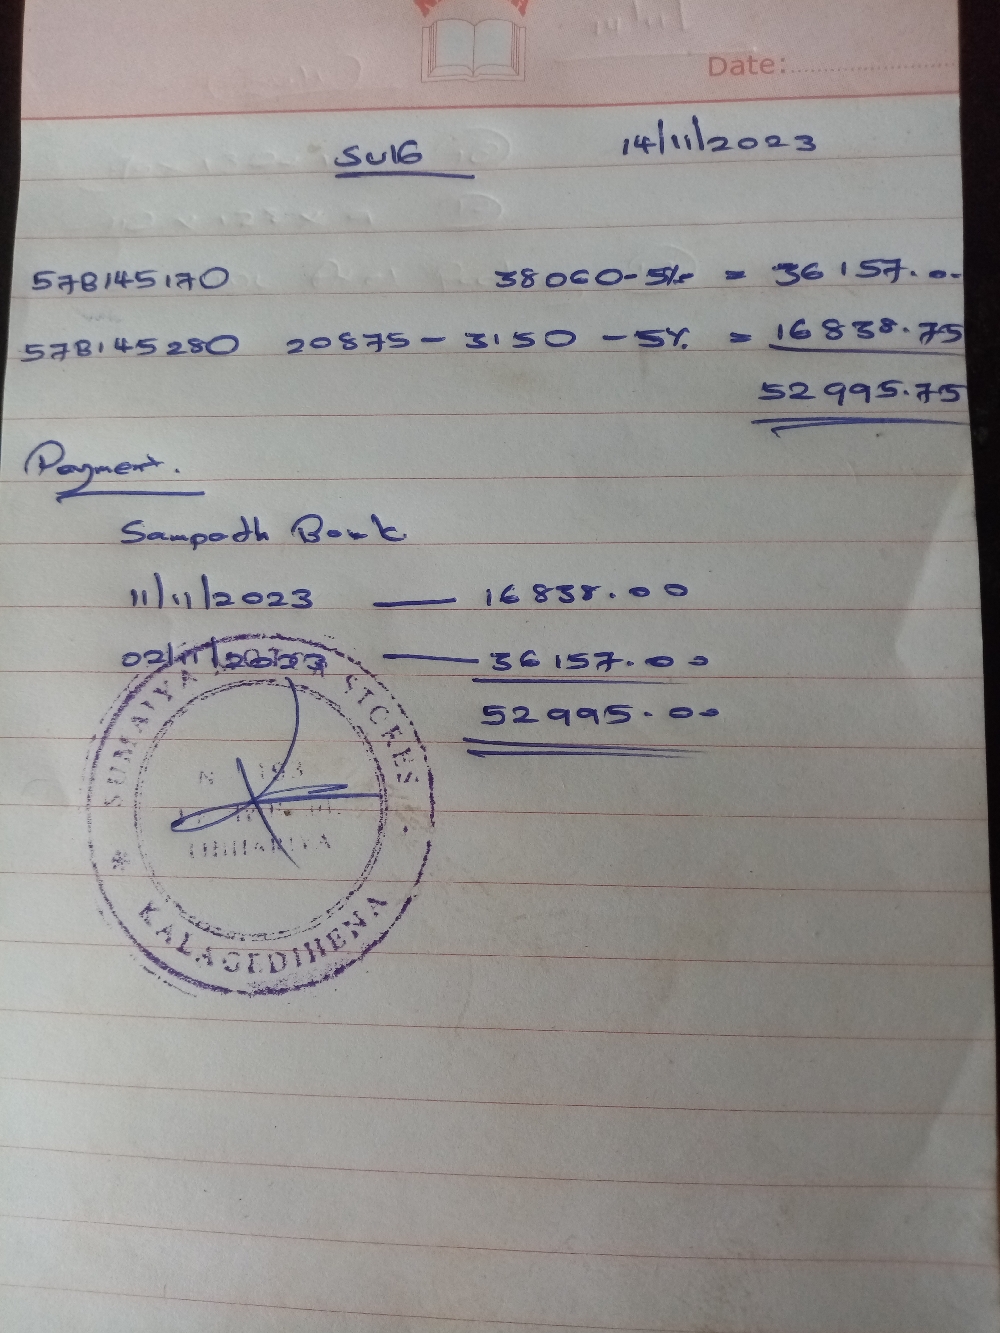 Date:
SU16 14/11/2023
57B145170 38060-5% = 36157.00
57B145280 20875 - 3150 - 5% = 16838.75
52995.75
Payment.
Sampath Bank
11/11/2023 — 16838.00
02/11/2023 — 36157.00
52995.00
SUMAIYA
KALAGEDIHENA